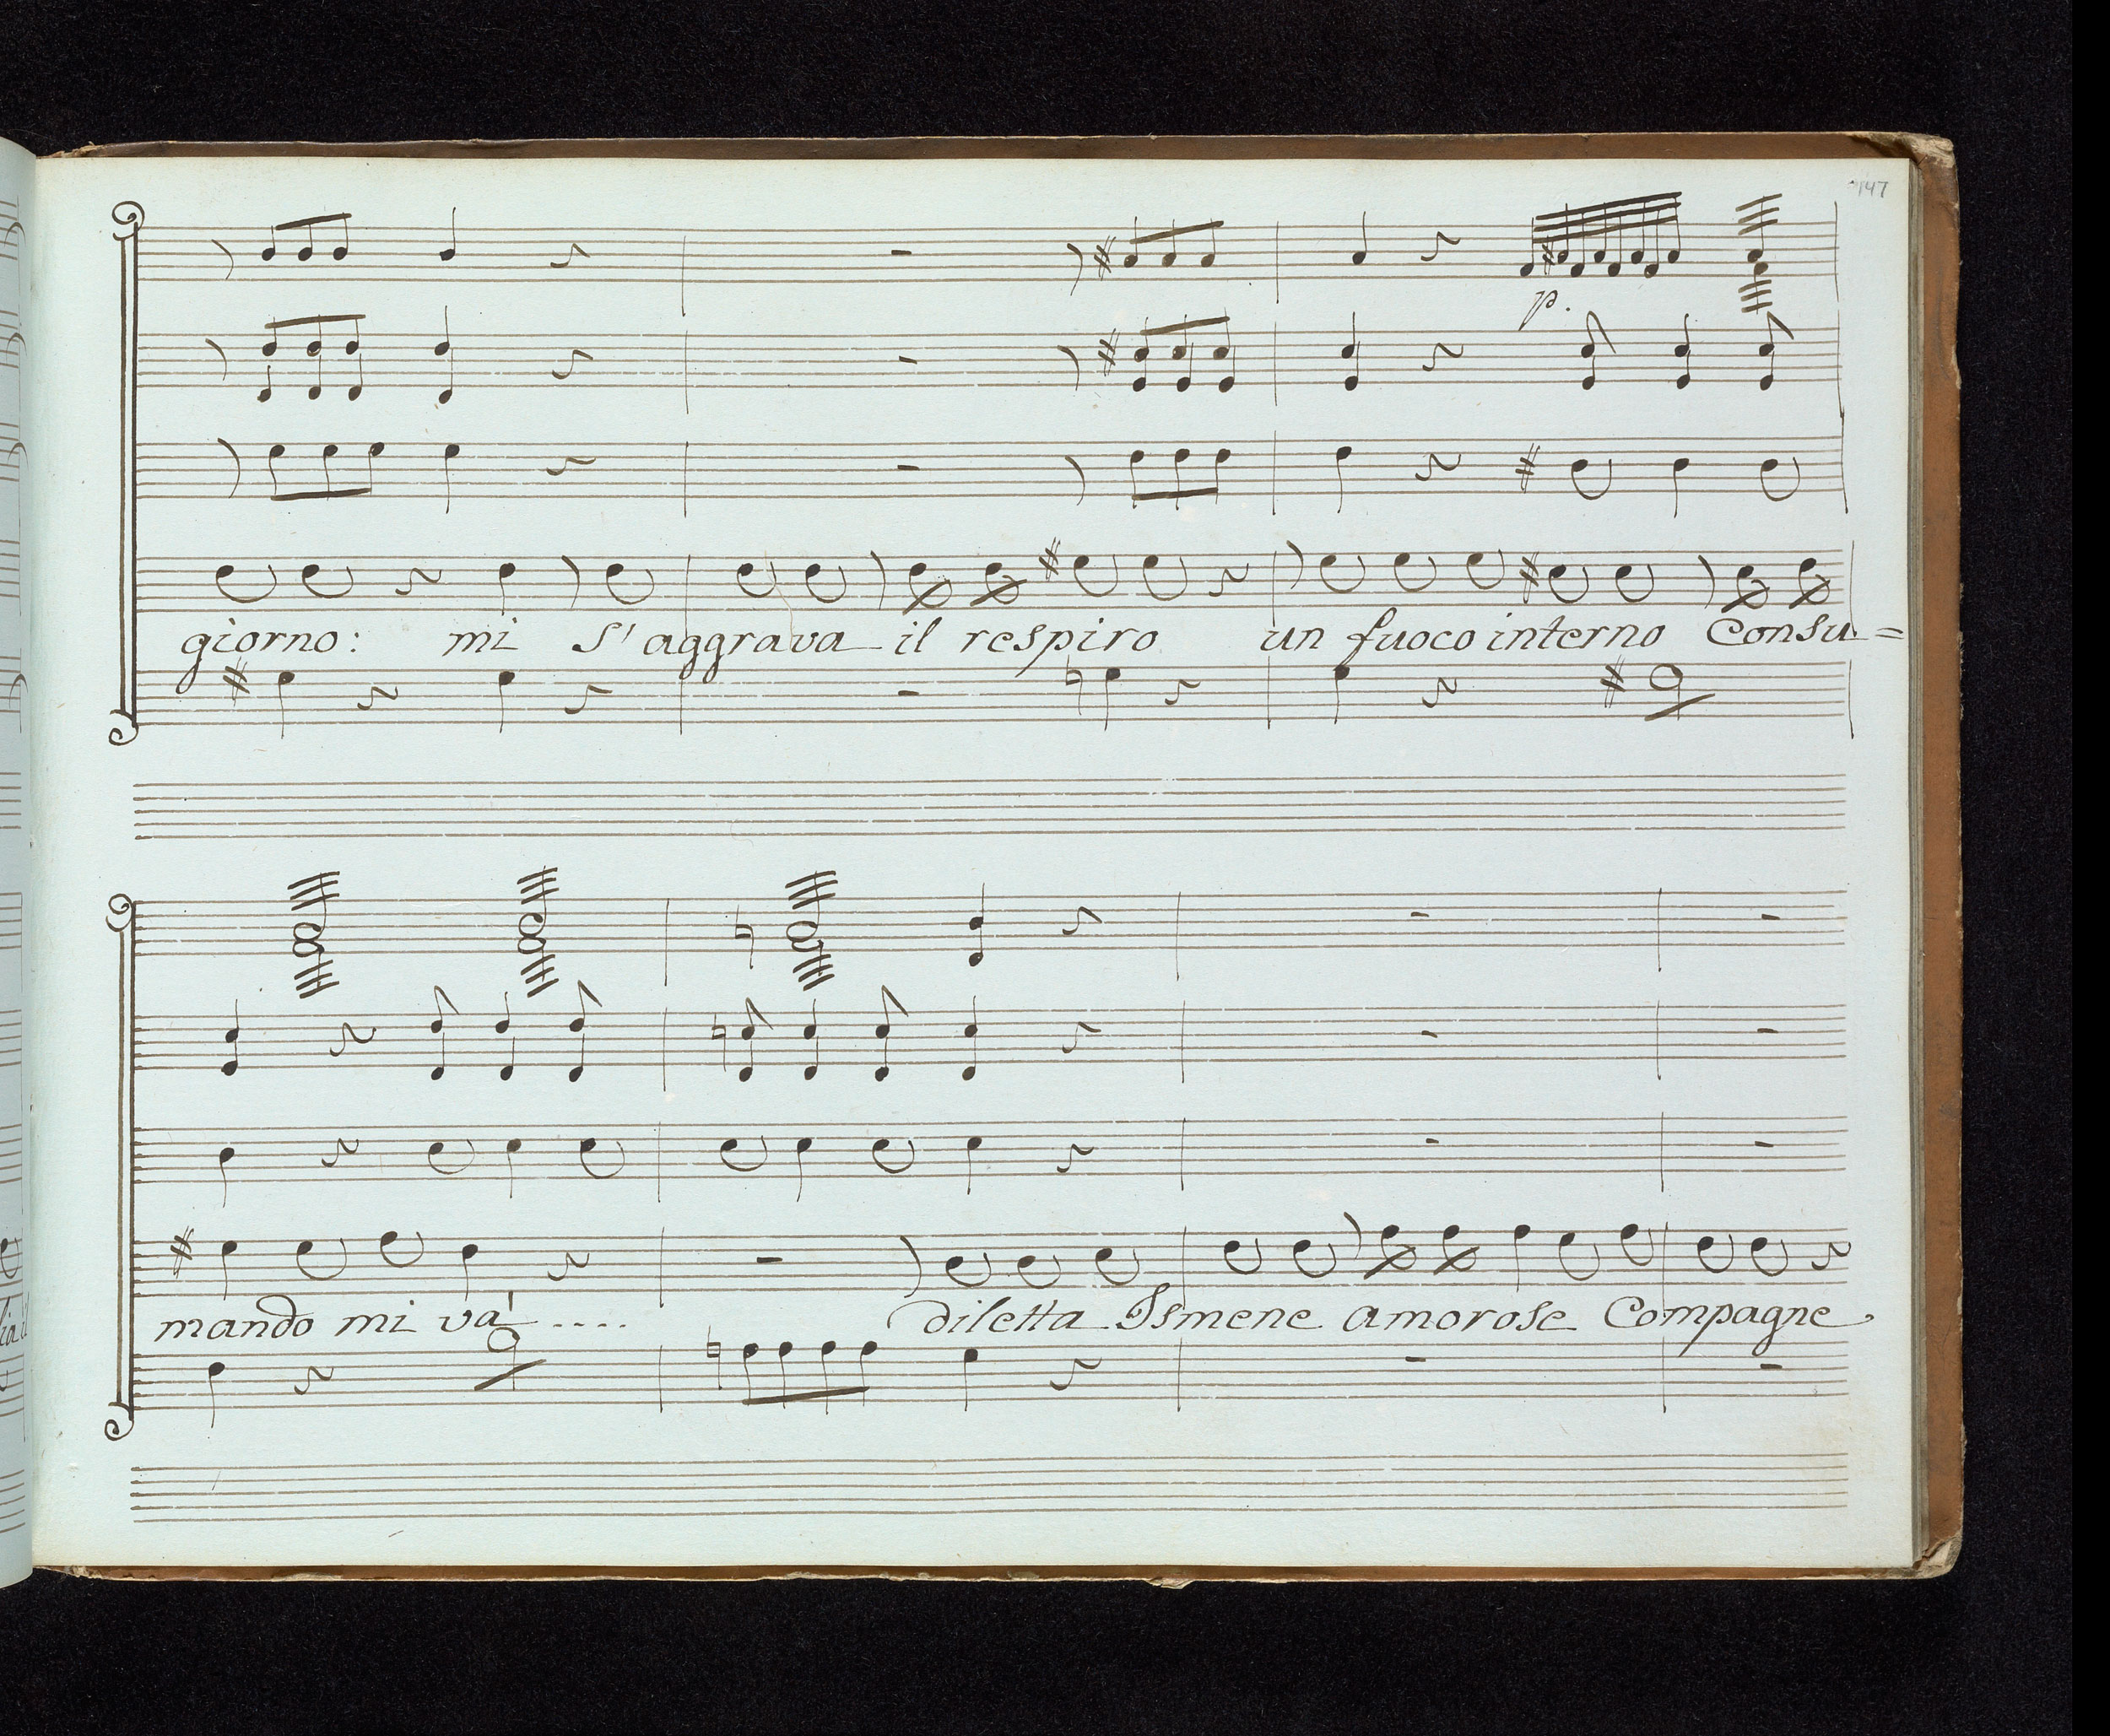 147
p.
giorno: mi s'aggrava il respiro un fuoco interno Consu=
mando mi va' ....  diletta Ismene amorose Compagne